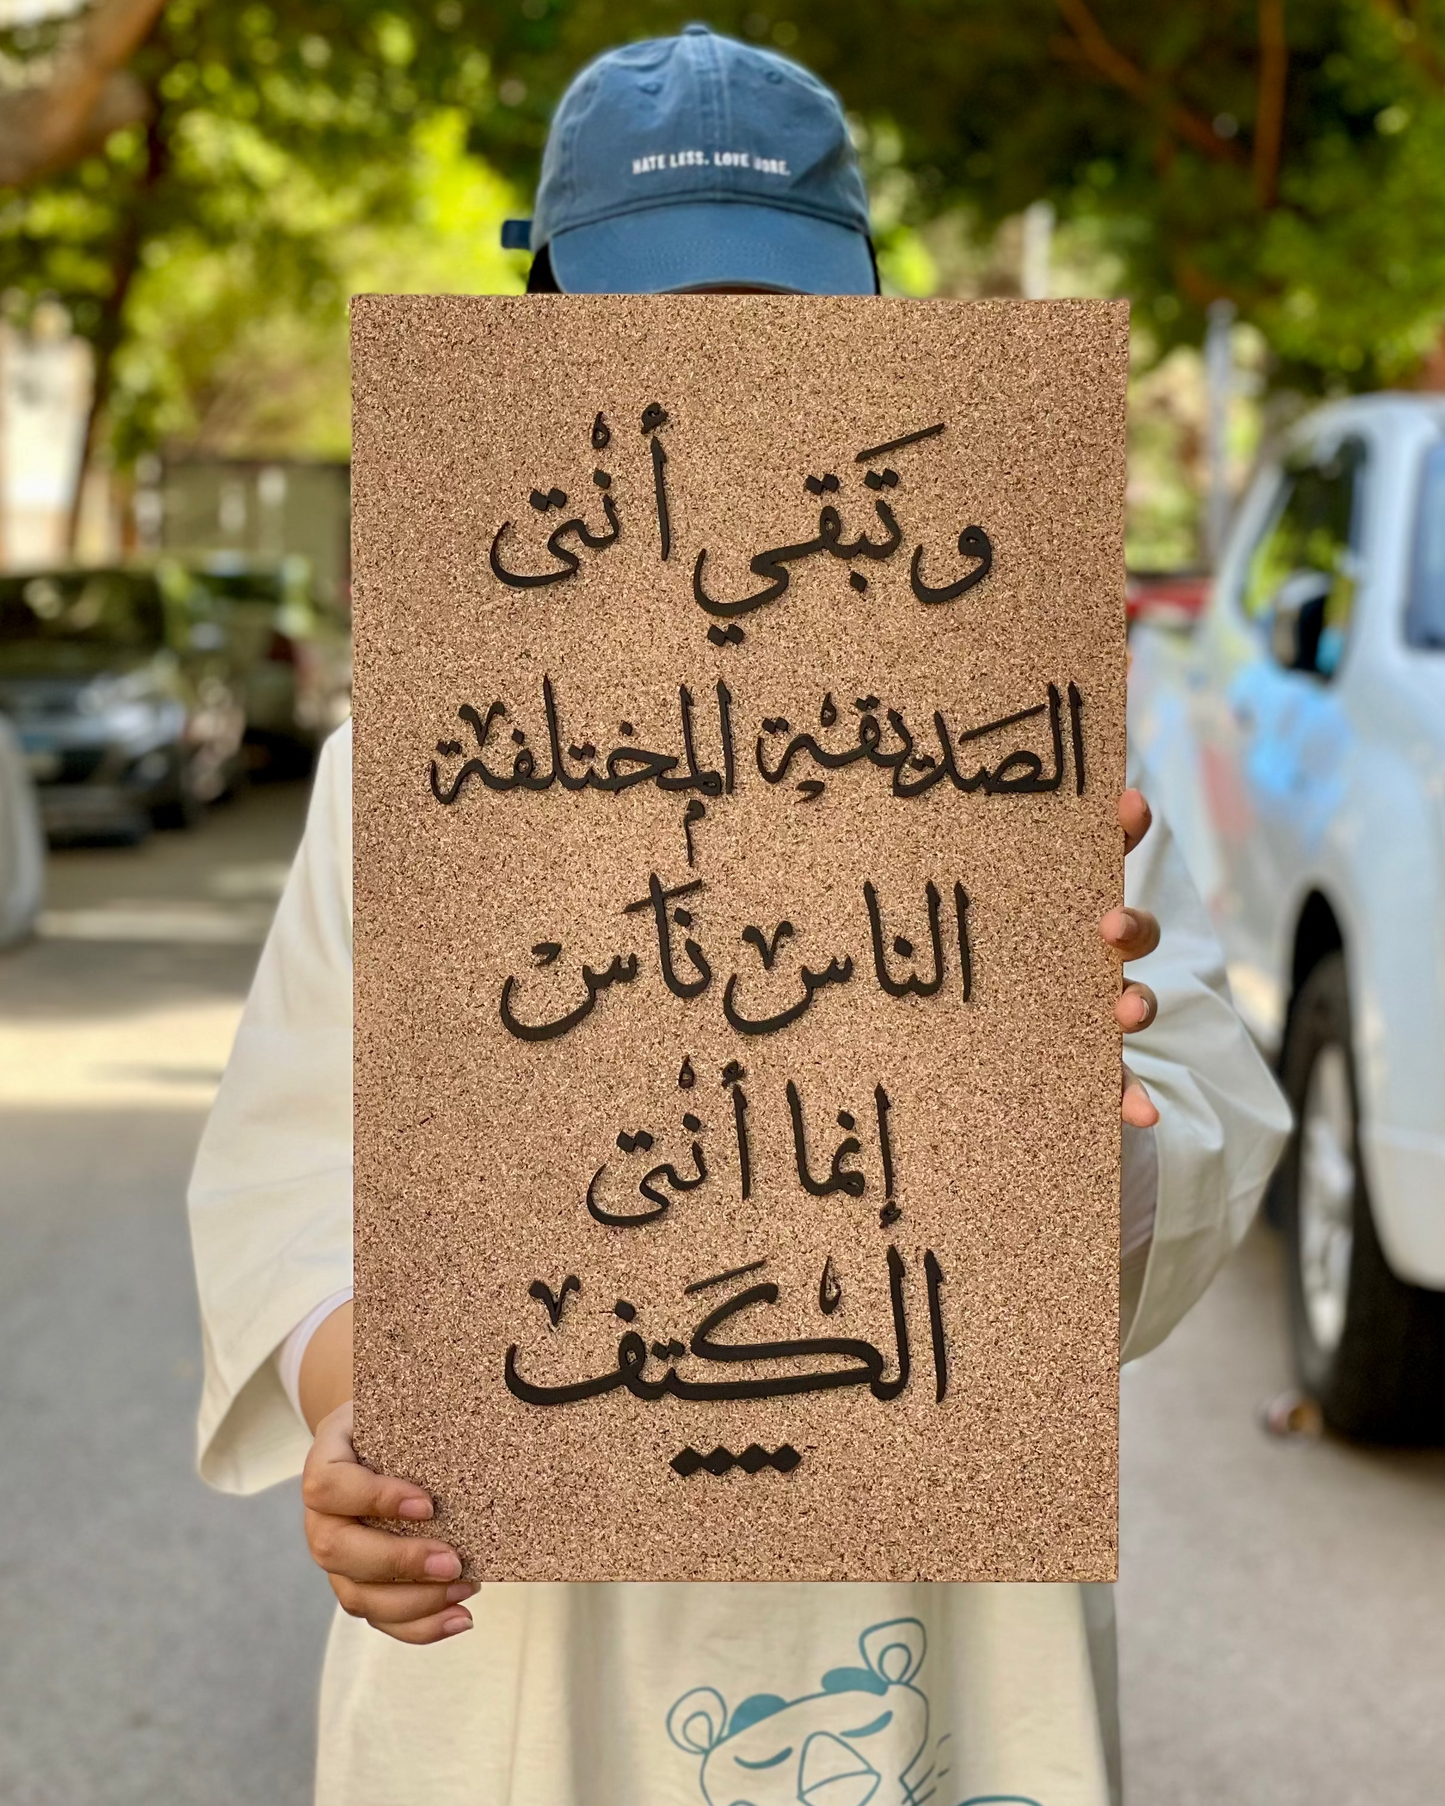 HATE LESS. LOVE MORE.
وتَبقي أنْتى
الصَديقة المختلفة
الناس نَاس
إنما أنْتى
الكَتف